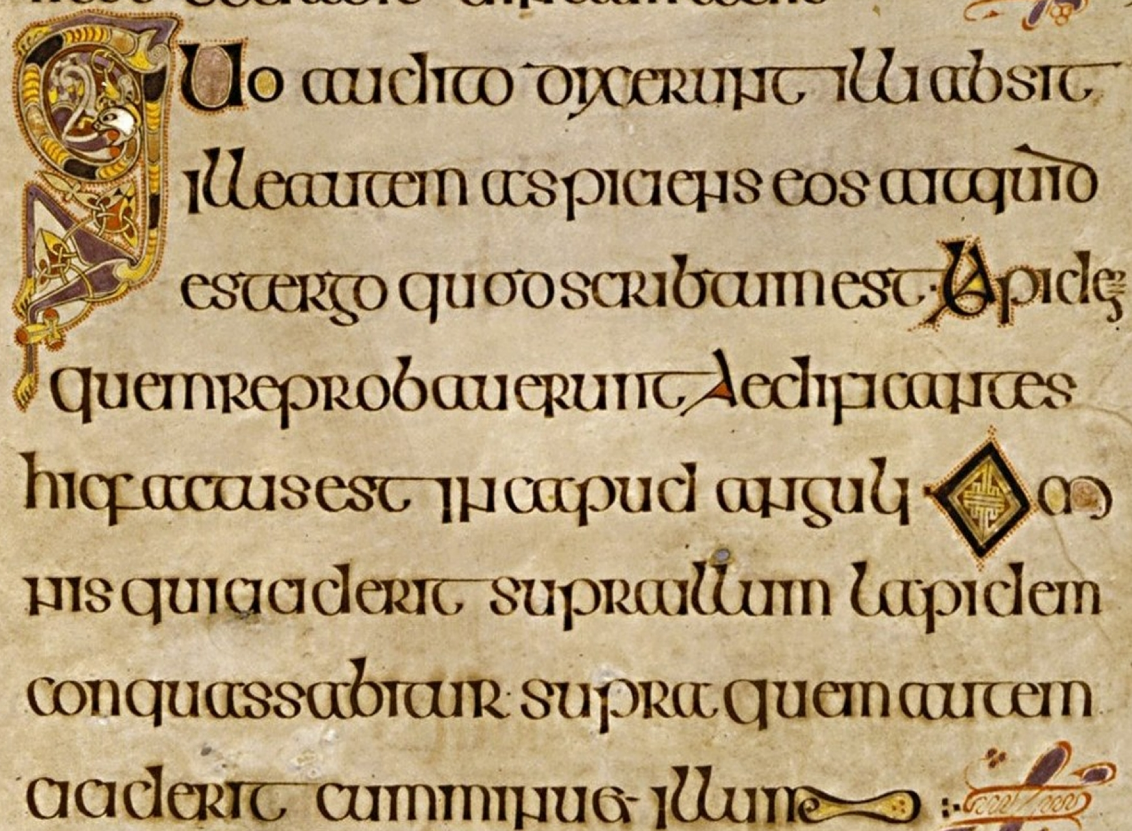 QUo audito dixerunt illi absit
ille autem aspiciens eos ait quid
est ergo quod scribtum est· Lapidē
quem reprobauerunt Aedificantes
hic factus est in capud anguli Om
nis qui ciciderit supra illum lapidem
conquassabitur· supra quem autem
ciciderit cumminuet illum